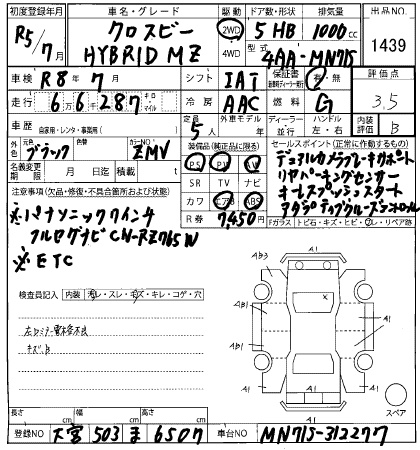 初度登録年月 車名・グレード 駆動 ドア数・形状 排気量 出品NO.
R5/7月 クロスビー HYBRID MZ 2WD 4WD 5 HB 1000cc 1439
型式 4AA-MN71S
車検 R8年7月 シフト IAT 保証書 有・無 評価点
走行 6万6千287 キロ マイル 冷房 AAC 燃料 G 3.5
車歴 自家用・レンタ・事業用( ) 定員 5人 外車モデル 年 ディーラー 並行 ハンドル 左・右 内装評価 B
外色 元色 ブラック カラーNO. ZMV 装備品(純正品に限る) セールスポイント(正常に動作するもの)
名義変更期限 月 日迄 積 PS PW AW デュアルカメラブレーキサポート
注意事項(欠品・修復・不具合箇所および状態) SR TV ナビ リヤパーキングセンサー
※パナソニック7インチ カワ エアB ABS キーレスプッシュスタート
フルセグナビ CN-RZ765W R券 7,450円 アダプティブクルーズコントロール
※ETC Fガラス トビ石・キズ・ヒビ・リペア跡
検査員記入 内装 汚レ・スレ・キズ・キレ・コゲ・穴
キズ、B
A1
AB3
A1
AB1
A1
A1
A1
A1
スペア
長さ cm 幅 cm 高さ cm
登録NO 大宮 503 ま 6507 車台NO MN71S-312277